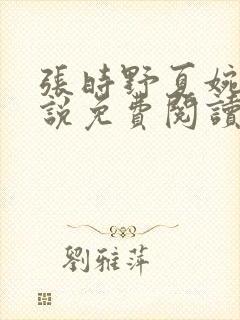 張時野夏婉
說免費閱讀
劉雅萍